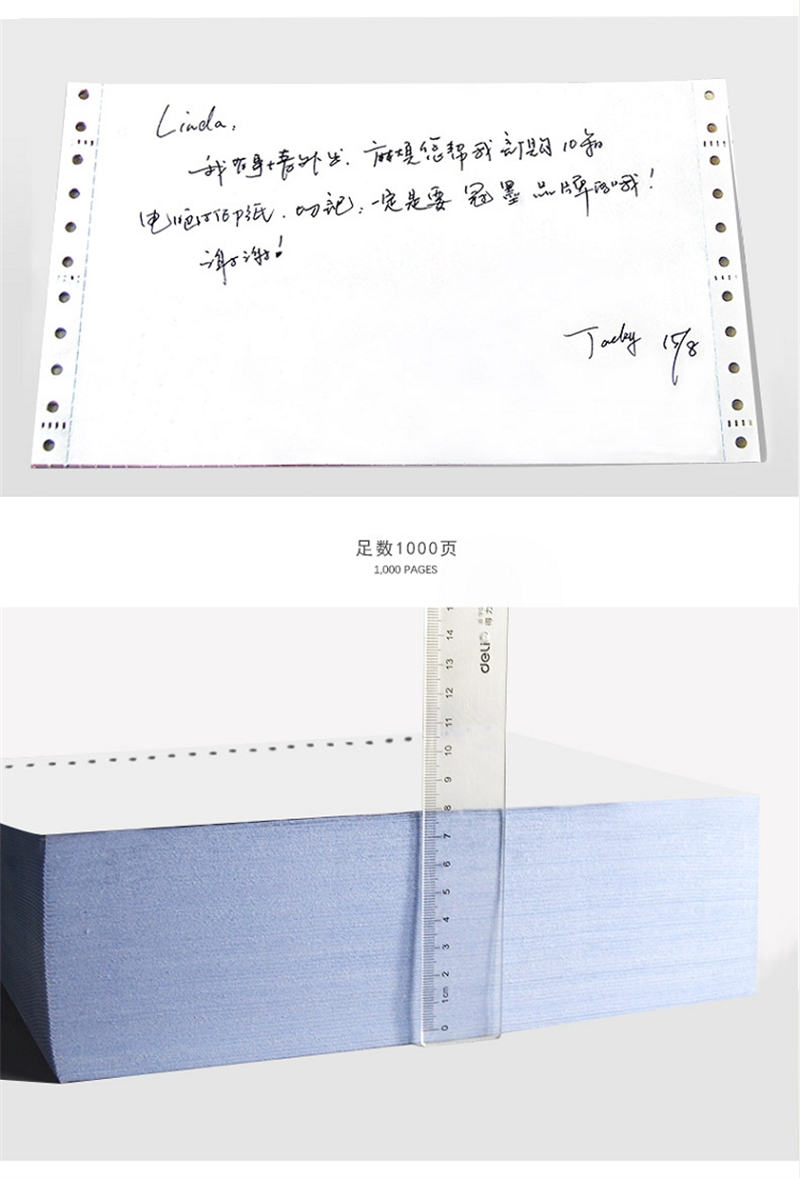 Linda,
我有事情外出,麻烦您帮我订购10箱
电脑打印纸,切记,一定是要冠墨品牌的哦!
谢谢!
Jacky 15/8
足数1000页
1,000 PAGES
deli 得力
15
14
13
12
11
10
9
8
7
6
5
4
3
2
1cm
0